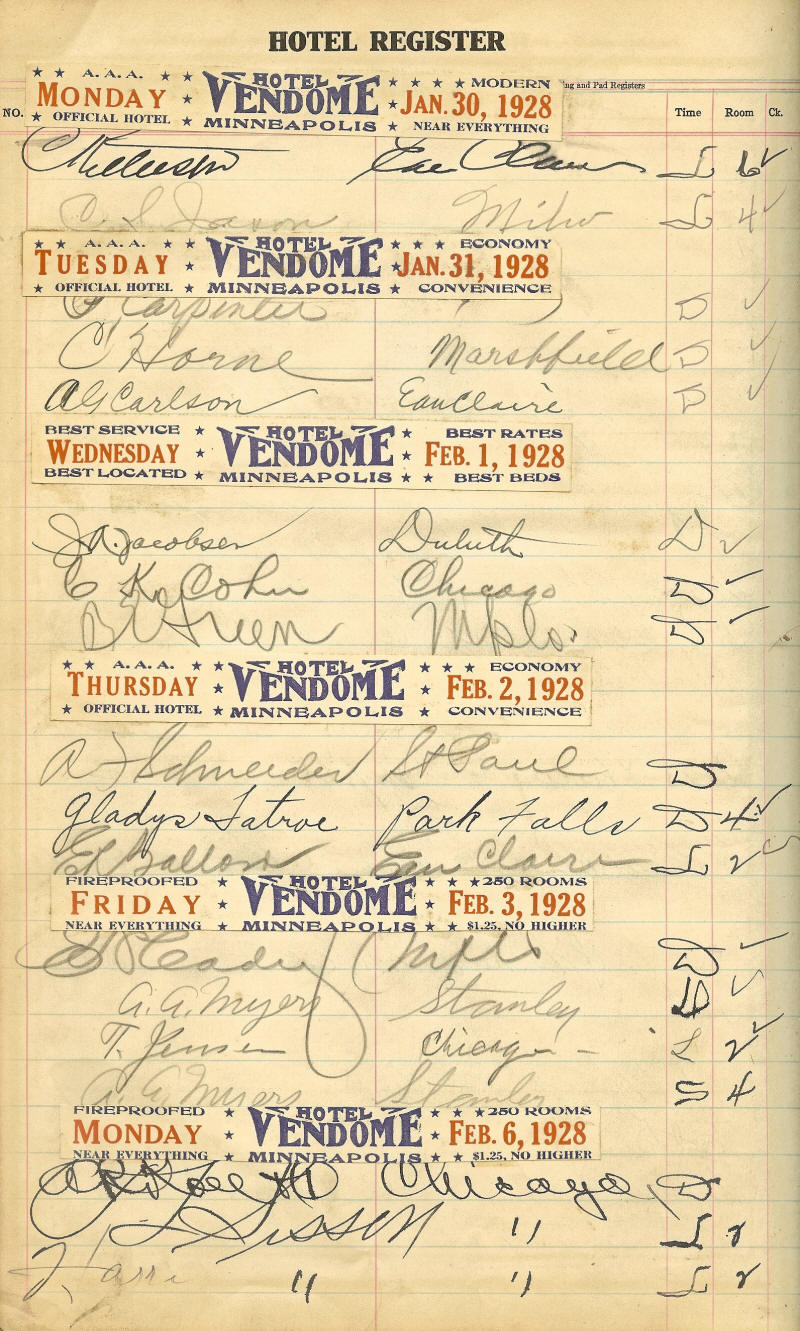 HOTEL REGISTER
ing and Pad Registers
NO. Time Room Ck.
★ ★ A.A.A. ★ ★ HOTEL ★ ★ ★ ★ MODERN
MONDAY ★ VENDOME ★ JAN. 30, 1928
★ OFFICIAL HOTEL ★ MINNEAPOLIS ★ NEAR EVERYTHING
Eau Claire L 6 ✓
C. S. Jaxon Milw L 4 ✓
★ ★ A.A.A. ★ ★ HOTEL ★ ★ ★ ECONOMY
TUESDAY ★ VENDOME ★ JAN. 31, 1928
★ OFFICIAL HOTEL ★ MINNEAPOLIS ★ CONVENIENCE
Carpenter " D ✓
C Horne Marshfield D ✓
A G Carlson Eau Claire D ✓
BEST SERVICE ★ HOTEL ★ BEST RATES
WEDNESDAY ★ VENDOME ★ FEB. 1, 1928
BEST LOCATED ★ MINNEAPOLIS ★ ★ BEST BEDS
J. A. Jacobsen Duluth D ✓
C K Cohn Chicago D ✓
B Green Mpls. D ✓
★ ★ A.A.A. ★ ★ HOTEL ★ ★ ★ ECONOMY
THURSDAY ★ VENDOME ★ FEB. 2, 1928
★ OFFICIAL HOTEL ★ MINNEAPOLIS ★ CONVENIENCE
A J Schneider St Paul D
Gladys Latroe Park Falls D 4 ✓
Eau Claire L 2
FIREPROOFED ★ HOTEL ★ ★ ★ 250 ROOMS
FRIDAY ★ VENDOME ★ FEB. 3, 1928
NEAR EVERYTHING ★ MINNEAPOLIS ★ ★ $1.25, NO HIGHER
Cady Mpls D ✓
A. A. Myers Stanley D ✓
T. Jensen Chicago L 2 ✓
A. A. Myers Stanley S 4
FIREPROOFED ★ HOTEL ★ ★ ★ 250 ROOMS
MONDAY ★ VENDOME ★ FEB. 6, 1928
NEAR EVERYTHING ★ MINNEAPOLIS ★ ★ $1.25, NO HIGHER
Chicago D
Sisson " L 2
" " L 2